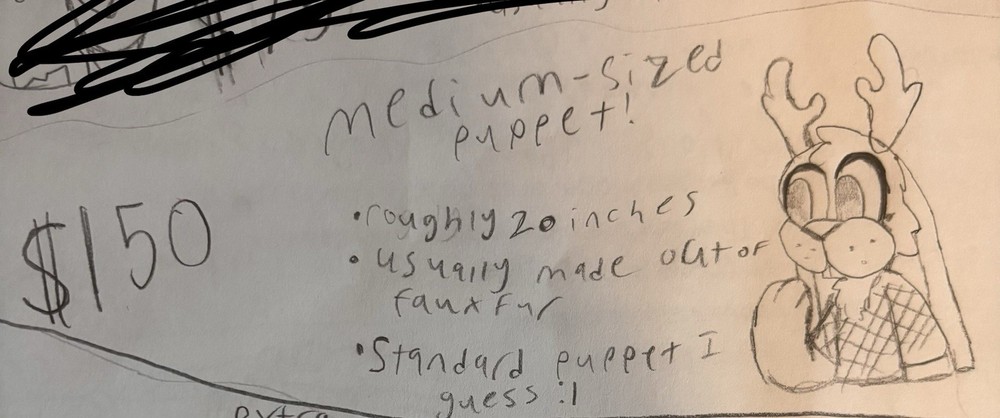 medium-sized
puppet!
$150
•roughly 20 inches
• usually made out of
faux fur
•Standard puppet I
guess :I
extra